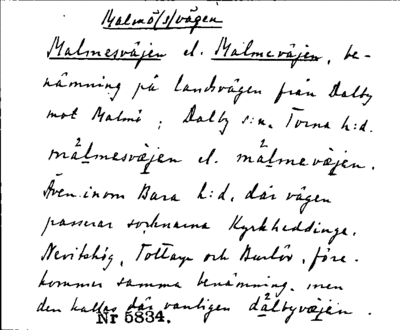 Malmö(s)vägen
Malmesväjen el. Malmeväjen, be-
nämning på landsvägen från Dalby
mot Malmö; Dalby s:n, Torna h:d.
målmesvæjen el. målmevæjen.
Även inom Bara h:d, där vägen
passerar socknarna Kyrkheddinge,
Nevitshög, Tottarp och Burlöv, före-
kommer samma benämning, men
den kallas där vanligen dålbyvæjen.
Nr 5834.